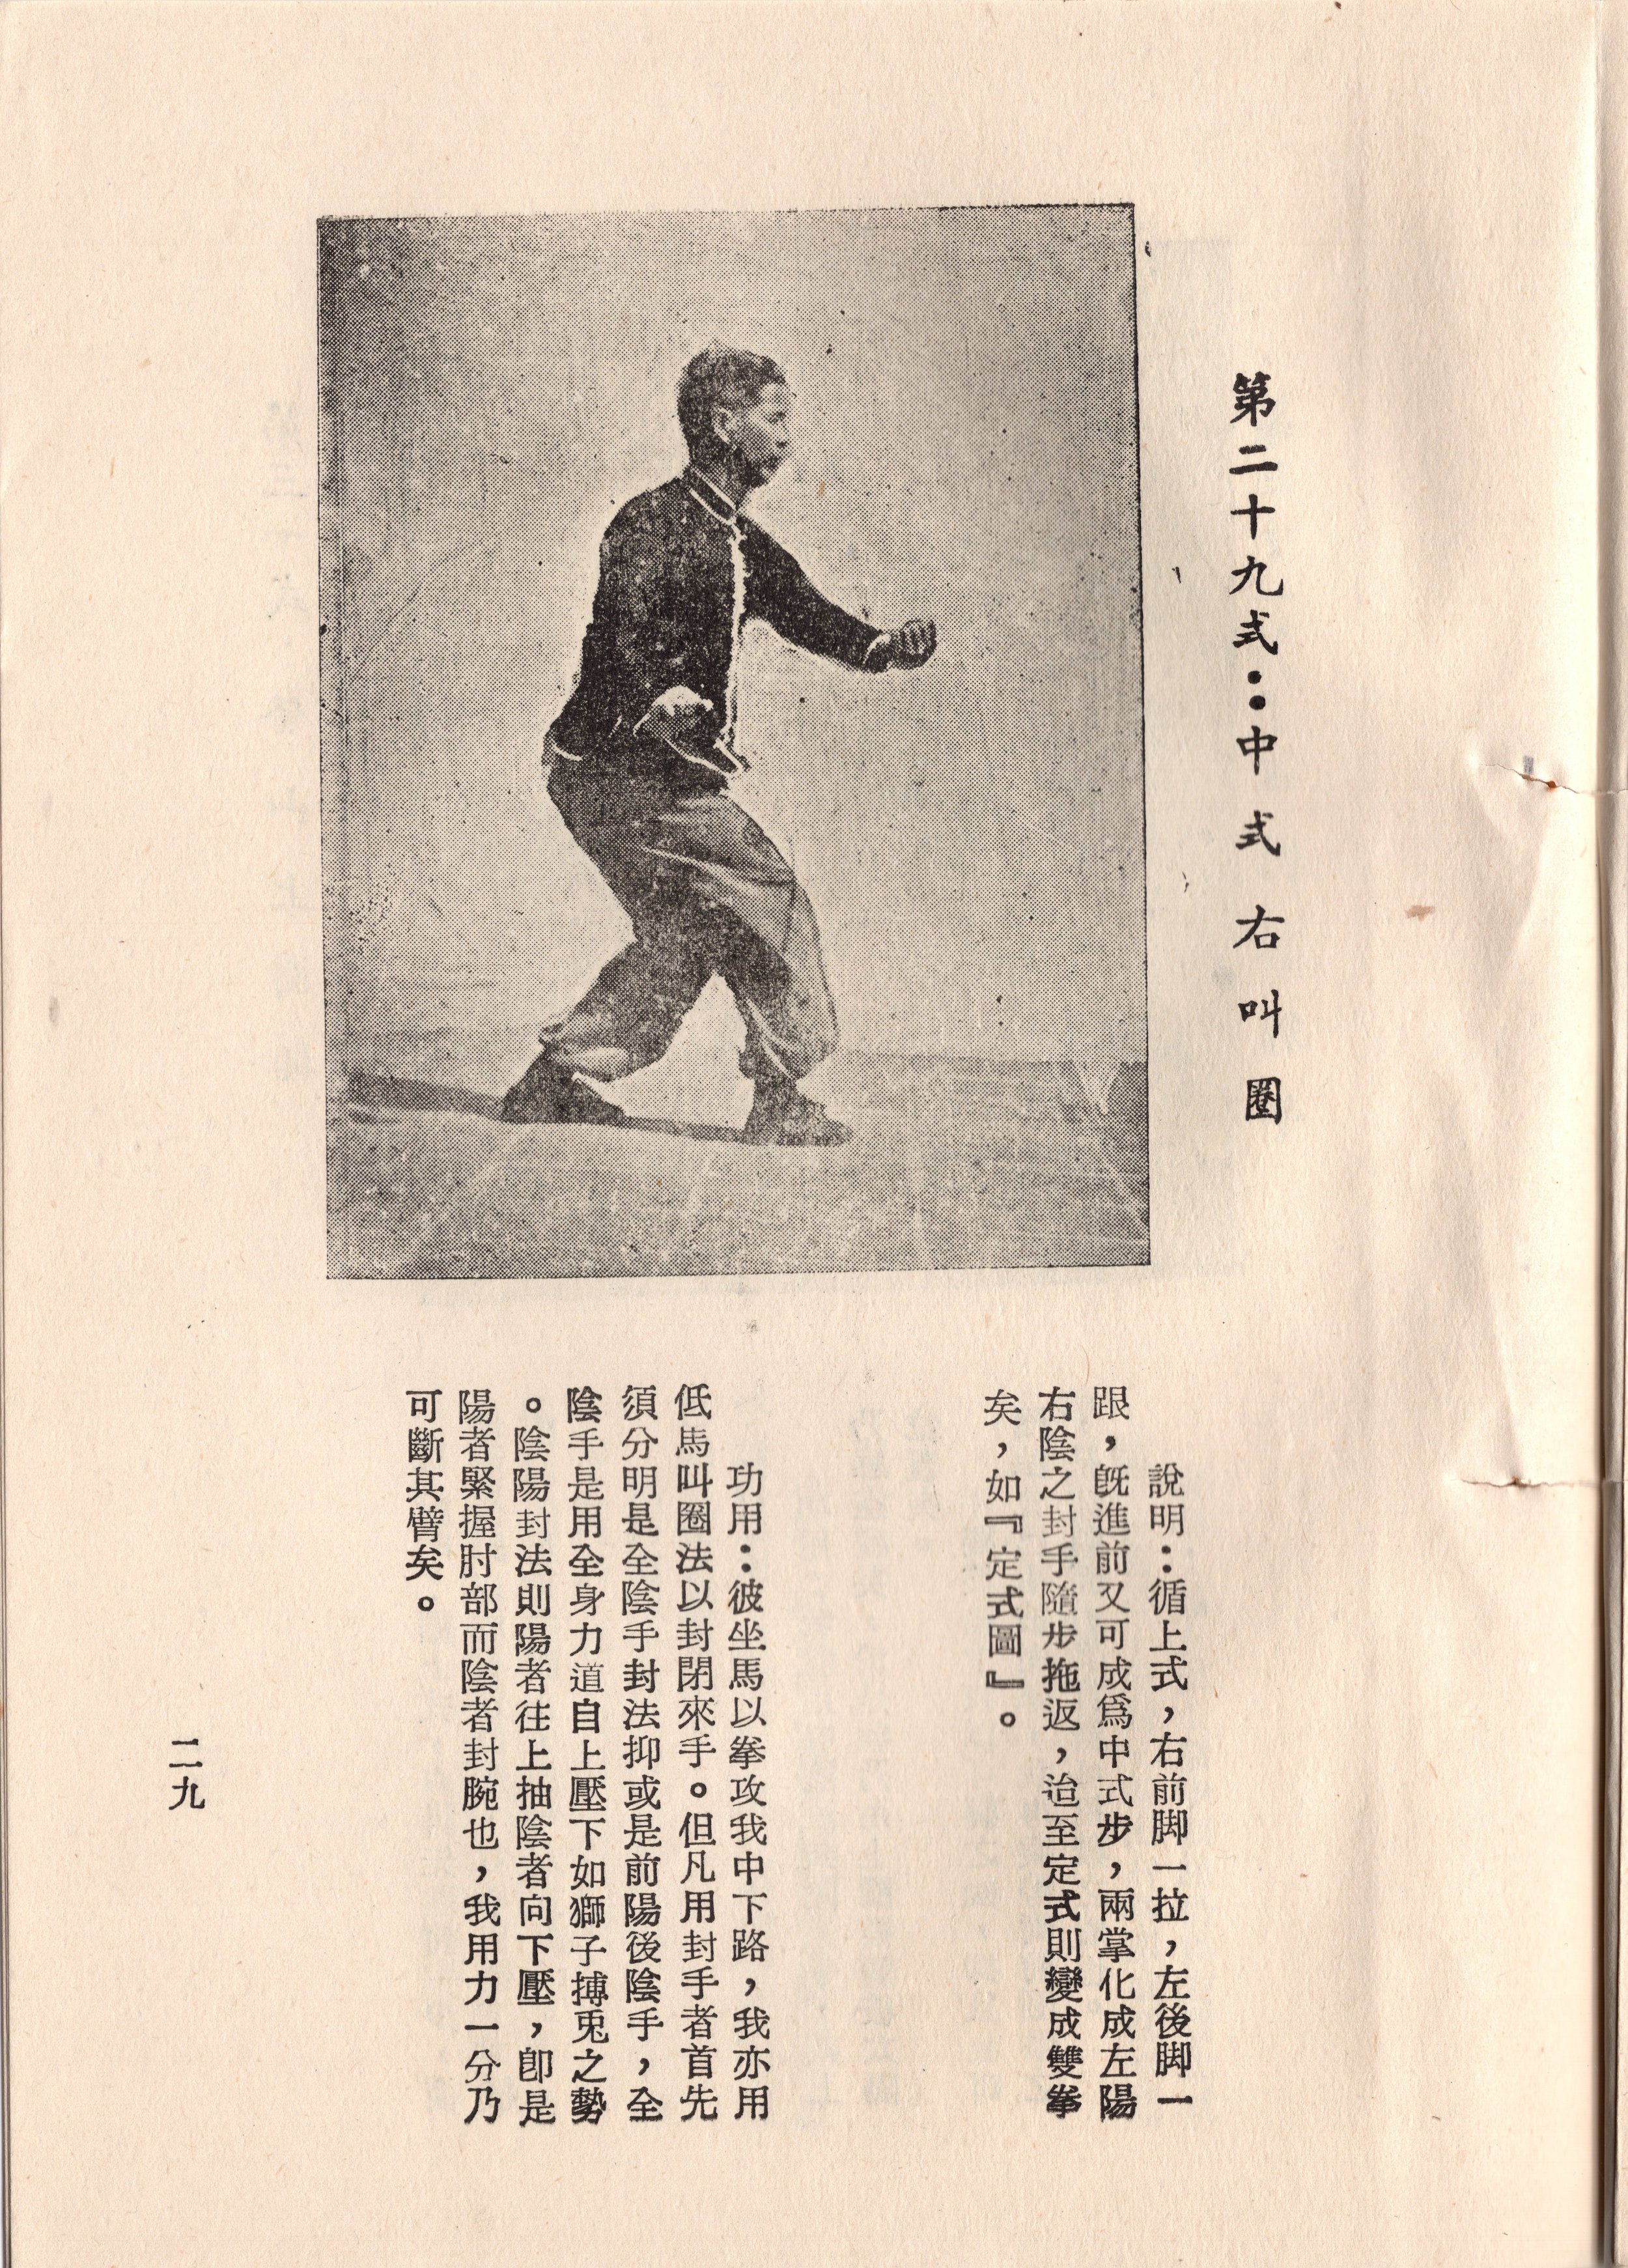 第二十九式：中式右叫圈
說明：循上式，右前脚一拉，左後脚一
跟，旣進前又可成爲中式步，兩掌化成左陽
右陰之封手隨步拖返，迨至定式則變成雙拳
矣，如『定式圖』。
功用：彼坐馬以拳攻我中下路，我亦用
低馬叫圈法以封閉來手。但凡用封手者首先
須分明是全陰手封法抑或是前陽後陰手，全
陰手是用全身力道自上壓下如獅子搏兎之勢
。陰陽封法則陽者往上抽陰者向下壓，卽是
陽者緊握肘部而陰者封腕也，我用力一分乃
可斷其臂矣。
二九